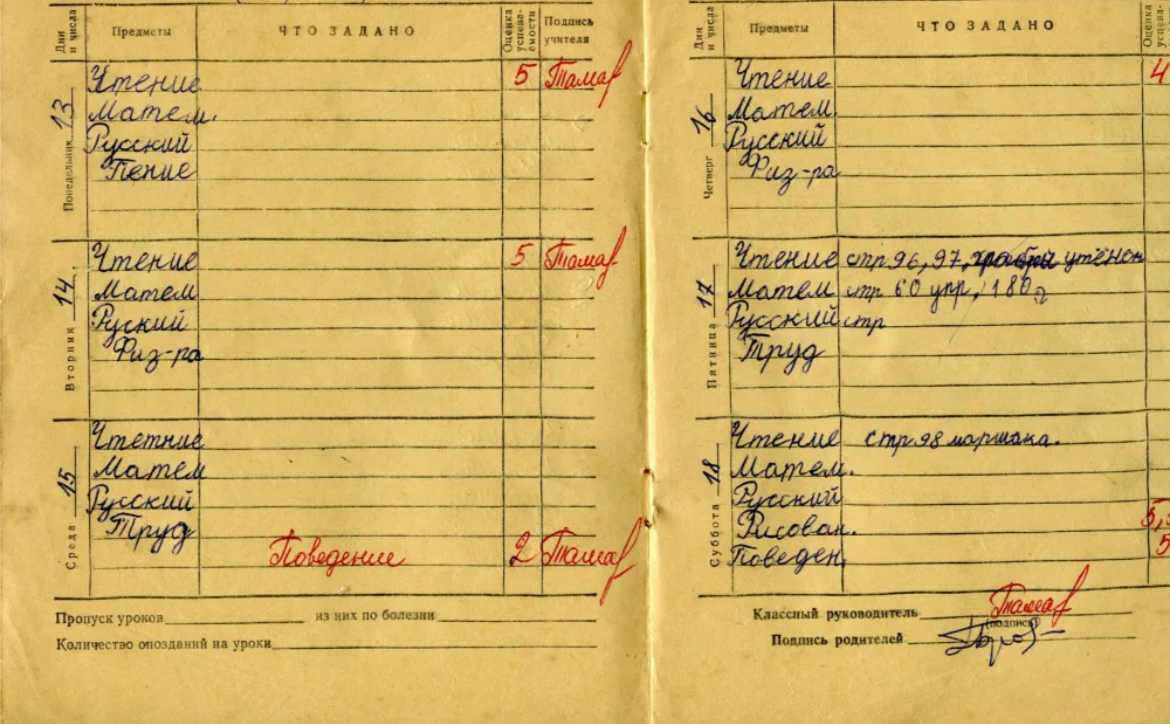 Дни и числа Предметы ЧТО ЗАДАНО Оценка успева-емости Подпись учителя
Понедельник 13
Чтение 5 Тамаf
Матем.
Русский
Пение
Вторник 14.
Чтение 5 Тамаf
Матем
Руский
Физ-ра
Среда 15
Чтетние
Матем
Русский
Труд
Поведение 2 Тамаf
Пропуск уроков из них по болезни
Количество опозданий на уроки
Дни и числа Предметы ЧТО ЗАДАНО Оценка успева-
Четверг 16
Чтение 4
Матем
Русский
Физ-ра
Пятница 17
Чтение стр 96, 97, храбры утёнок
Матем стр 60 упр, 180
Русский стр
Труд
Суббота 18
Чтение стр. 98 маршака.
Матем.
Русский
Рисован. 5,
Поведен. 5
Классный руководитель
(подпись)
Подпись родителей